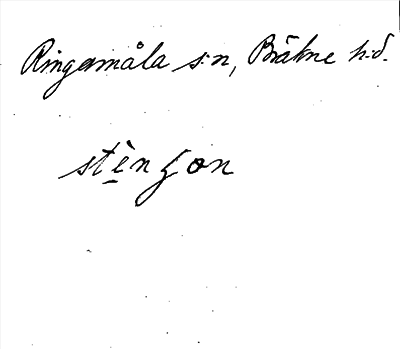 Ringamåla s:n, Bräkne h:d.
stè̱nʒon